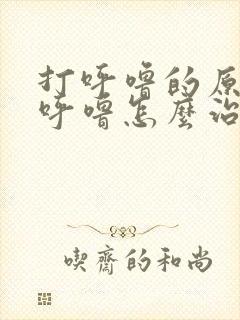 打呼噜的原
呼噜怎麼治
喫齋的和尚